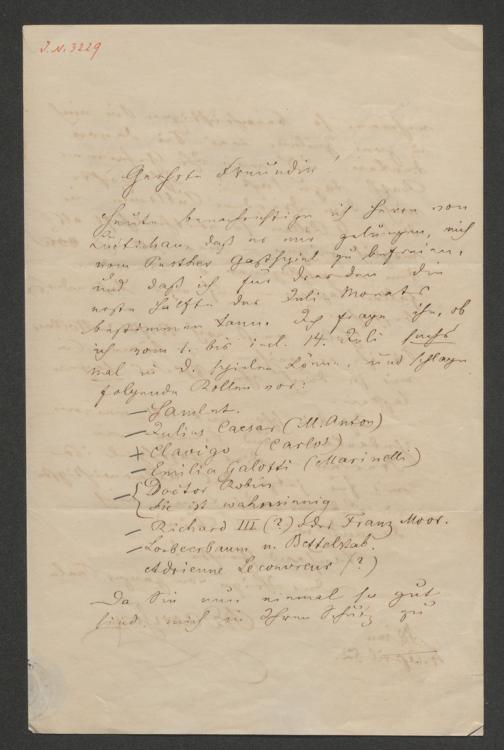 J. N. 3229
Geehrte Freundin!
Heute benachrichtige ich Herrn von
Lüttichau, daß es mir gelungen, mich
vom Pesther Gastspiel zu befreien,
und daß ich für Dresden die
erste Hälfte des Juli Monats
bestimmen kann. Ich frage ihn, ob
ich vom 1. bis incl. 14. Juli sechs
mal in D. spielen könne, und schlage
folgende Rollen vor:
– Hamlet.
– Julius Caesar (M. Anton)
+ Clavigo (Carlos)
– Emilia Galotti (Marinelli)
– { Doctor Robin
Sie ist wahnsinnig
– Richard III (?) oder Franz Moor.
– Lorbeerbaum u. Bettelstab.
Adrienne Lecouvreur (?)
Da Sie nun einmal so gut
sind, mich in Ihren Schutz zu